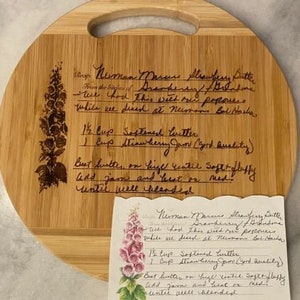 Neiman Marcus Strawberry Butter
From the kitchen of Granberry / Grandma
We had this with our popovers
while we dined at Neimans Bal Harbor
1½ Cup Softened butter
1 Cup Strawberry Jam (Good Quality)
Beat butter on high until soft + fluffy
Add jam and beat on med.
until well blended
Neiman Marcus Strawberry Butter
Granberry / Grandma
We had this with our popovers
while we dined at Neimans Bal Harbor
1½ Cup Softened butter
1 Cup Strawberry Jam (Good Quality)
Beat butter on high until soft + fluffy
Add jam and beat on med.
until well blended